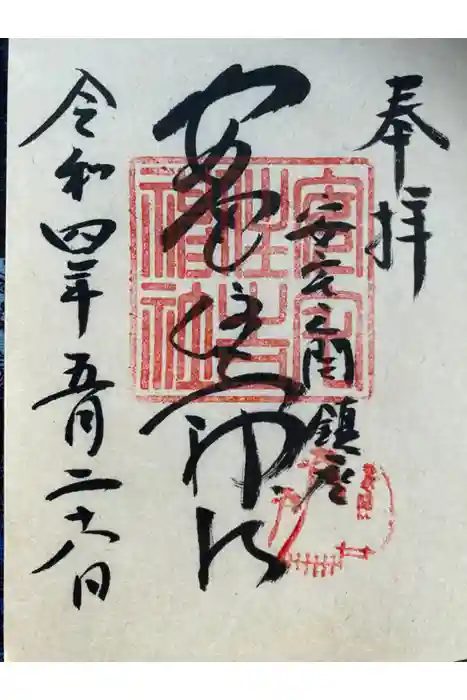 奉拝
安宅之関 鎮座
安宅住吉神社
安宅
住吉
神社
令和四年五月二十八日